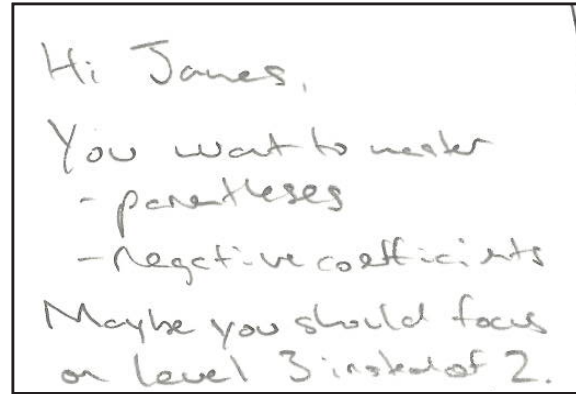 Hi James,
You want to master
- parentheses
- negative coefficients
Maybe you should focus
on level 3 instead of 2.